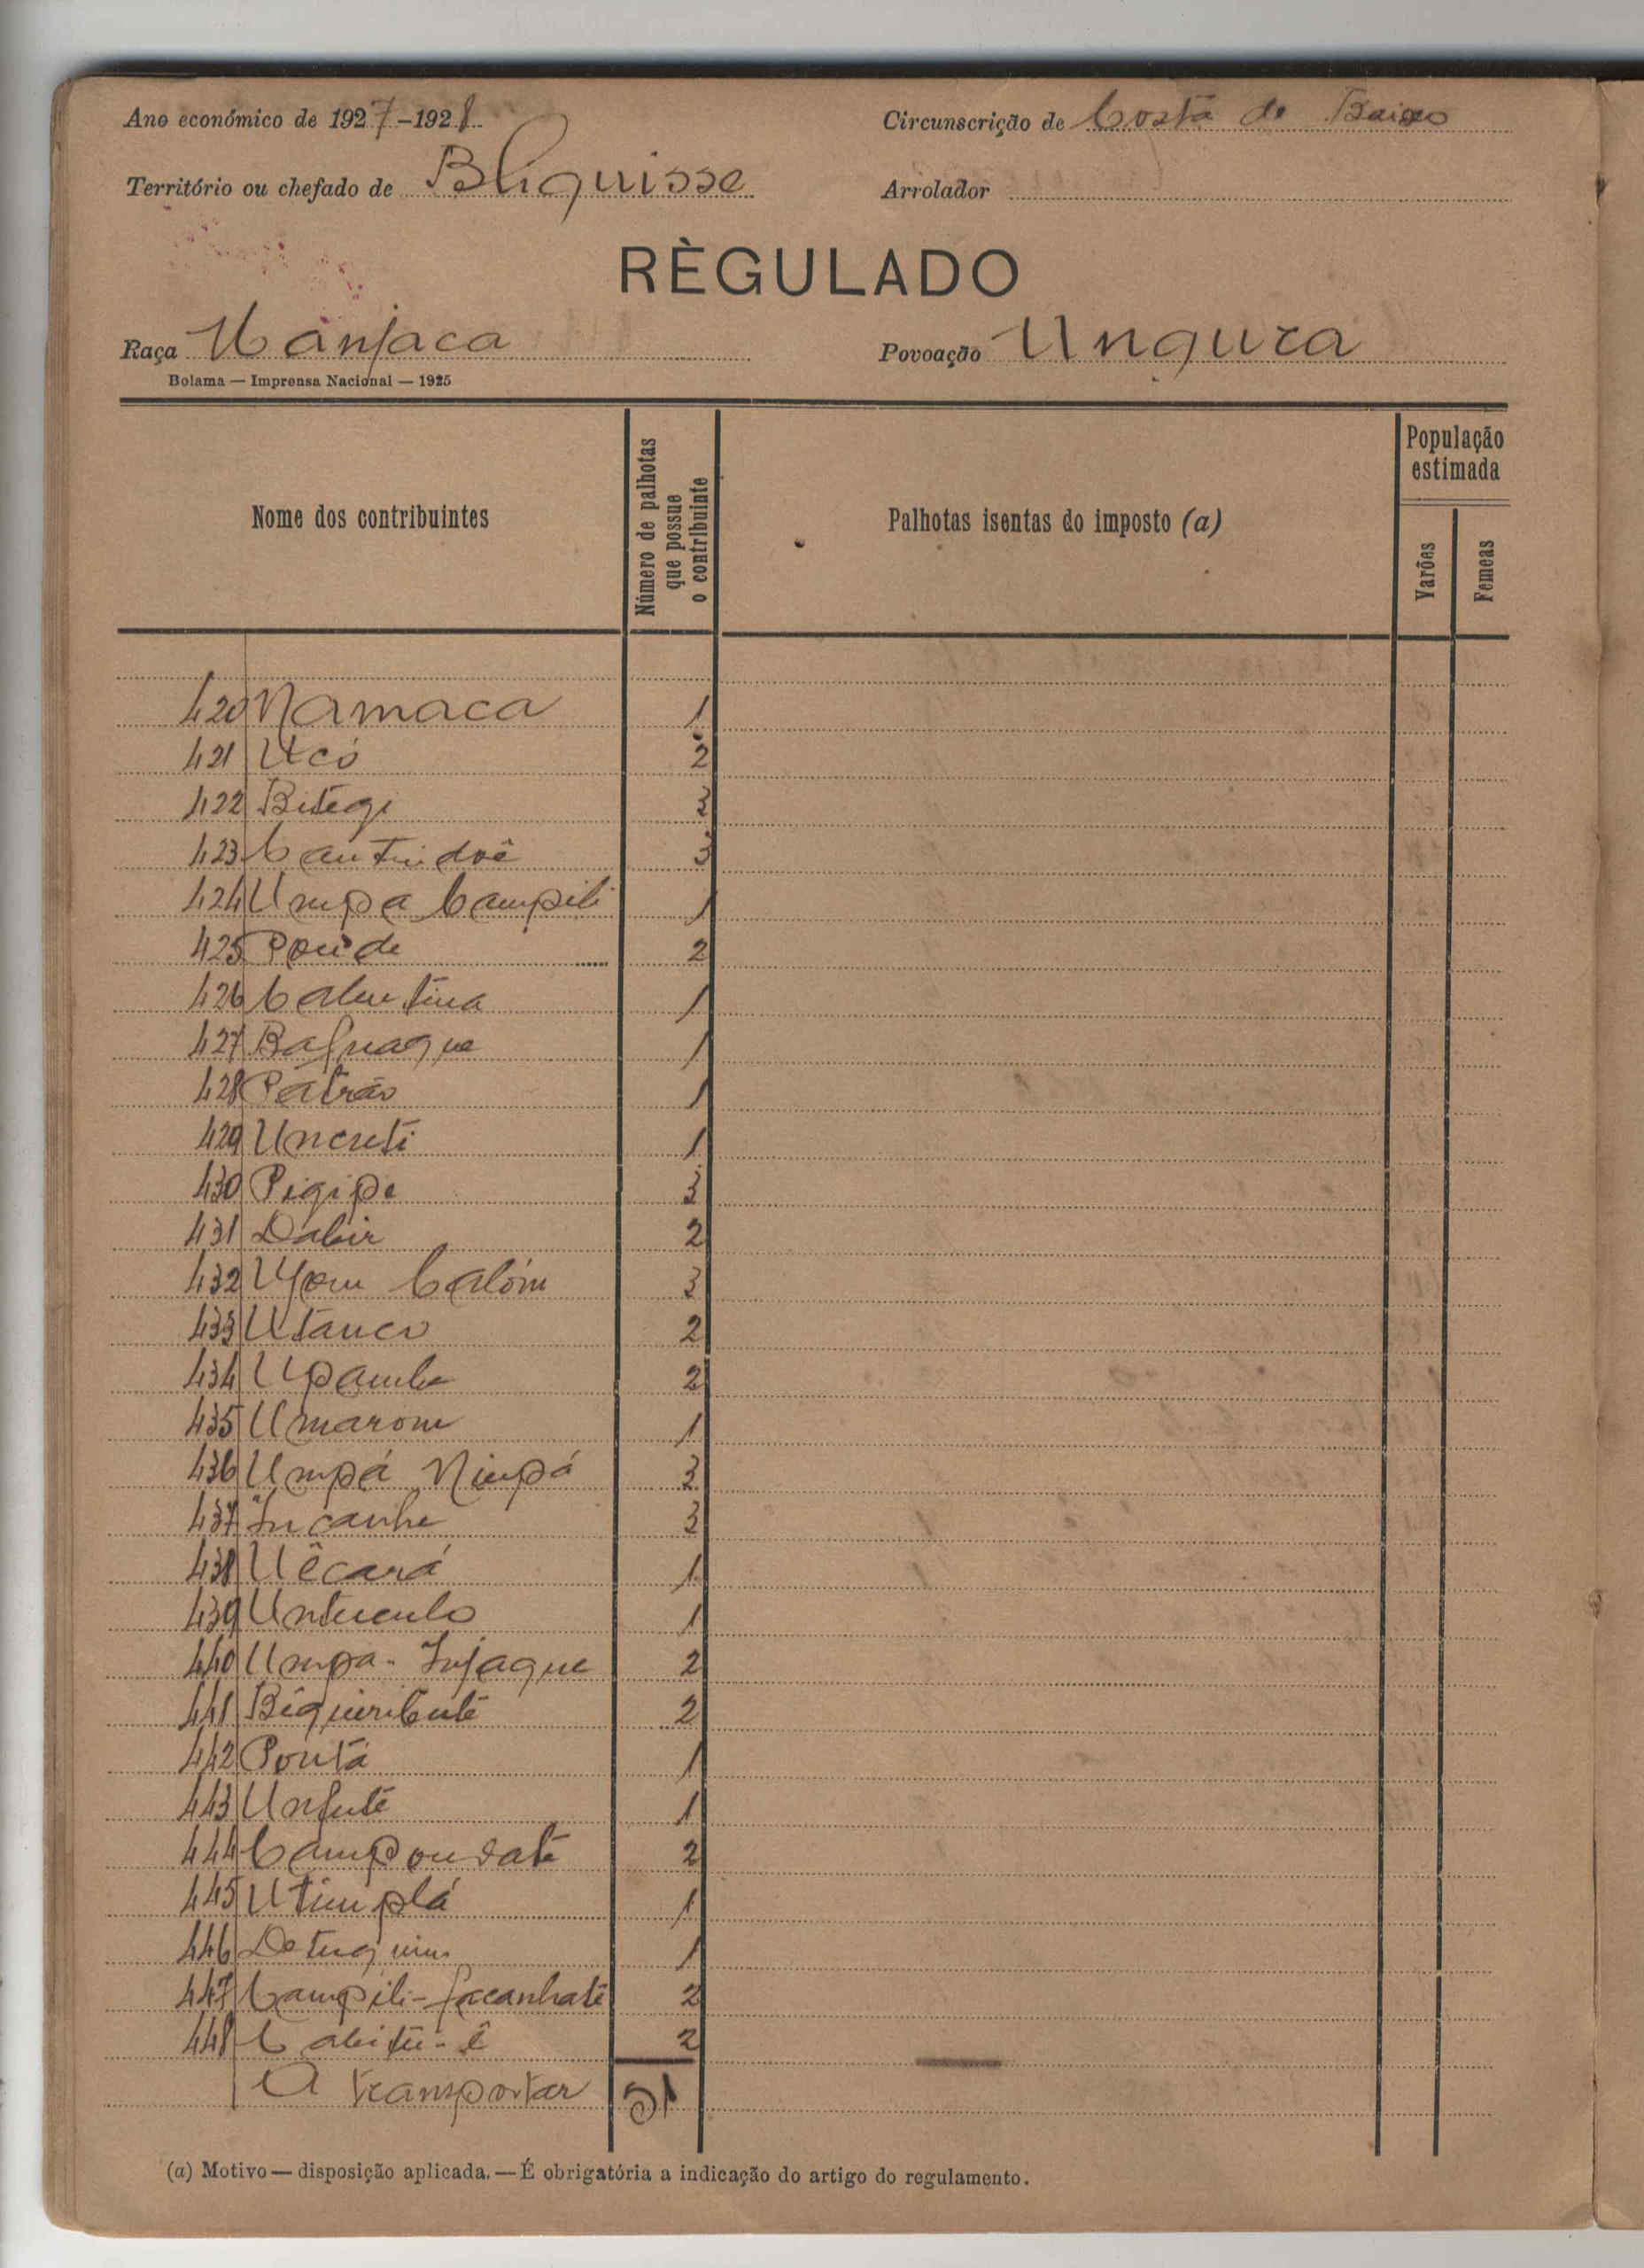 Ano económico de 1927-1928
Circunscrição de Costa de Baixo
Território ou chefado de Bliquisse
Arrolador
RÈGULADO
Raça Manjaca
Povoação Ungura
Bolama — Imprensa Nacional — 1925
Nome dos contribuintes
Número de palhotas que possue o contribuinte
Palhotas isentas do imposto (a)
População estimada
Varões
Femeas
420 Namaca 1
421 Ucó 2
422 Bitegi 3
423 3
424 Umpa Campili 1
425 2
426 1
427 Bafnaque 1
428 Patrão 1
429 Uncuti 1
430 Pigipe 3
431 Dabir 2
432 Calóm 3
433 Utanco 2
434 Upambe 2
435 Umarom 1
436 Umpá Nimpá 3
437 Incanhe 3
438 Uêcará 1
439 Untuculo 1
440 Umpa-Injaque 2
441 Biquiributé 2
442 Pontá 1
443 Unfuté 1
444 2
445 Utimplá 1
446 Detuquim 1
447 Campili-facanhaté 2
448 2
A transportar 51
(a) Motivo — disposição aplicada. — É obrigatória a indicação do artigo do regulamento.